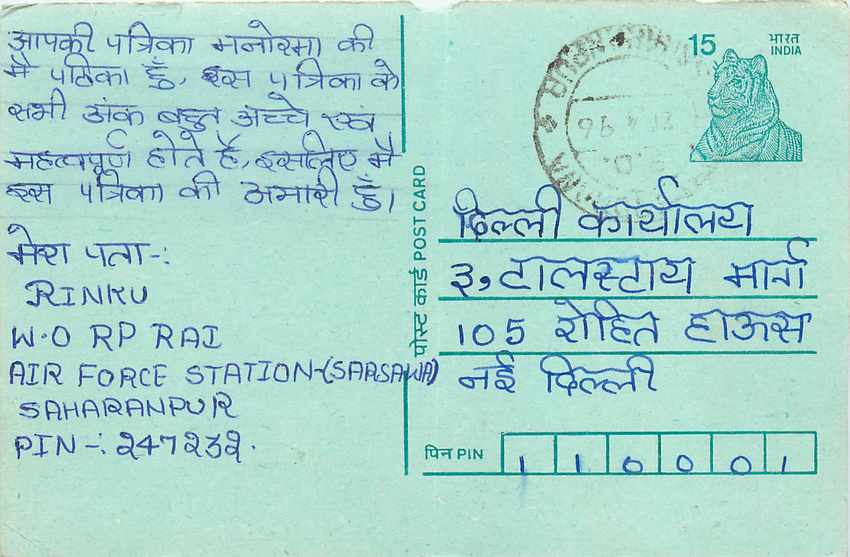 आपकी पत्रिका मनोरमा की
मै पठिका हुँ, इस पत्रिका के
सभी अंक बहुत अच्चे एवं
महत्वपूर्ण होते है, इसलिए मै
इस पत्रिका की अभारी हुँ।
मेरा पता-:
RINKU
W.O RP RAI
AIR FORCE STATION-(SARSAWA)
SAHARANPUR
PIN-: 247232.
पोस्ट कार्ड POST CARD
15
भारत
INDIA
दिल्ली कार्यालय
३, टालस्टाय मार्ग
105 रोहित हाऊस
नई दिल्ली
पिन PIN 110001